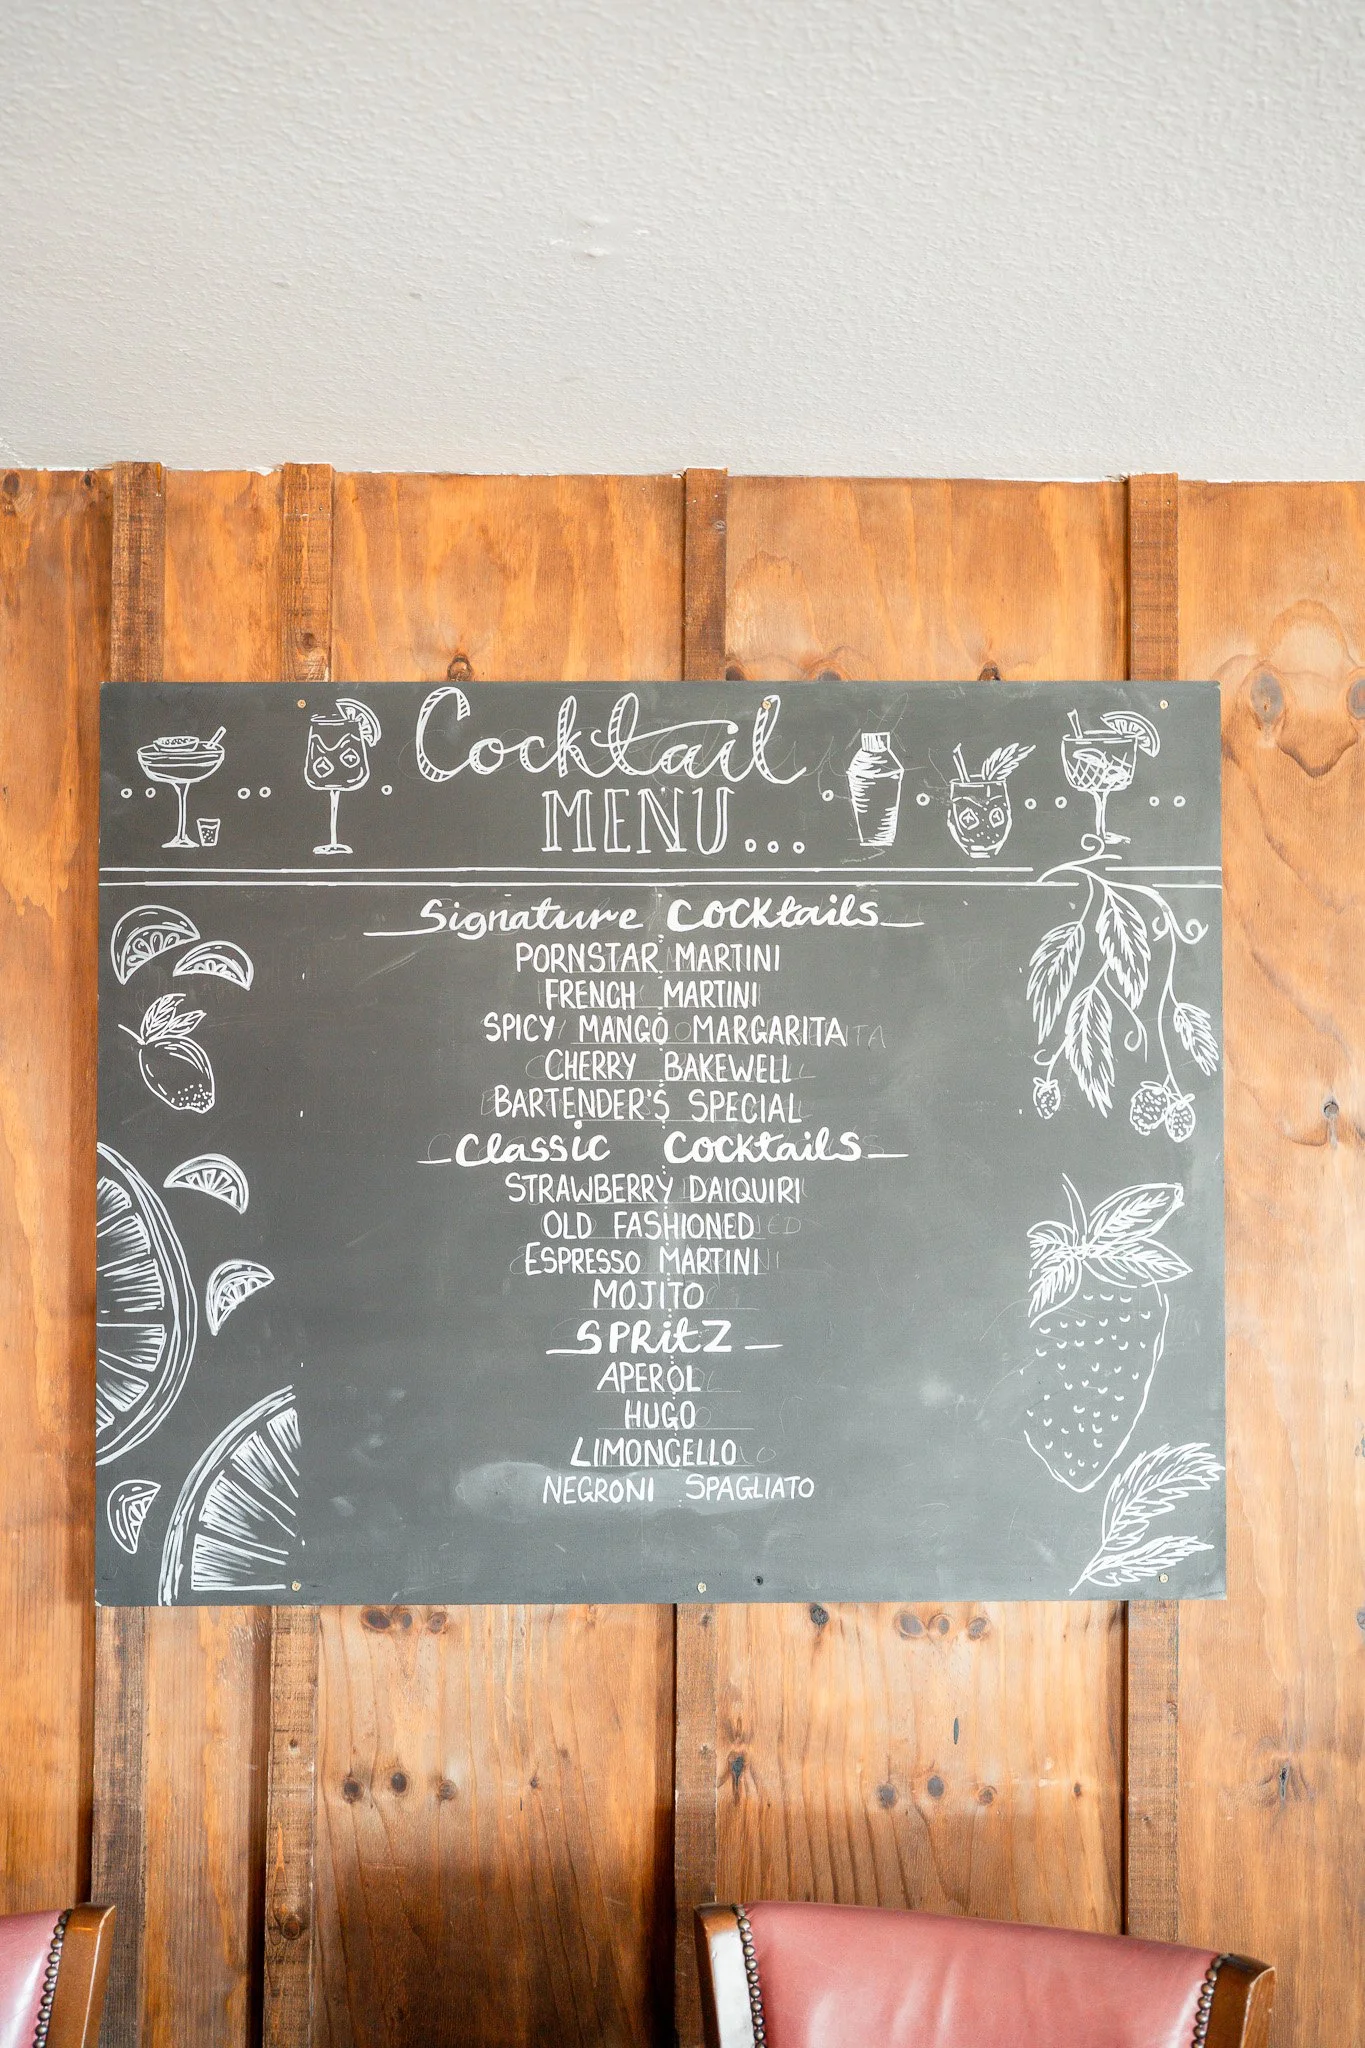 Cocktail
MENU...
Signature Cocktails
PORNSTAR MARTINI
FRENCH MARTINI
SPICY MANGO MARGARITA
CHERRY BAKEWELL
BARTENDER'S SPECIAL
Classic Cocktails
STRAWBERRY DAIQUIRI
OLD FASHIONED
ESPRESSO MARTINI
MOJITO
SPRitZ
APEROL
HUGO
LIMONCELLO
NEGRONI SPAGLIATO